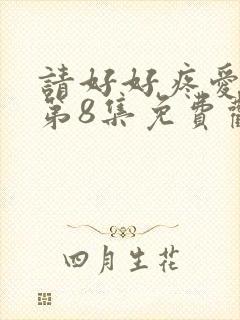 請好好疼愛
第8集免費
四月生花